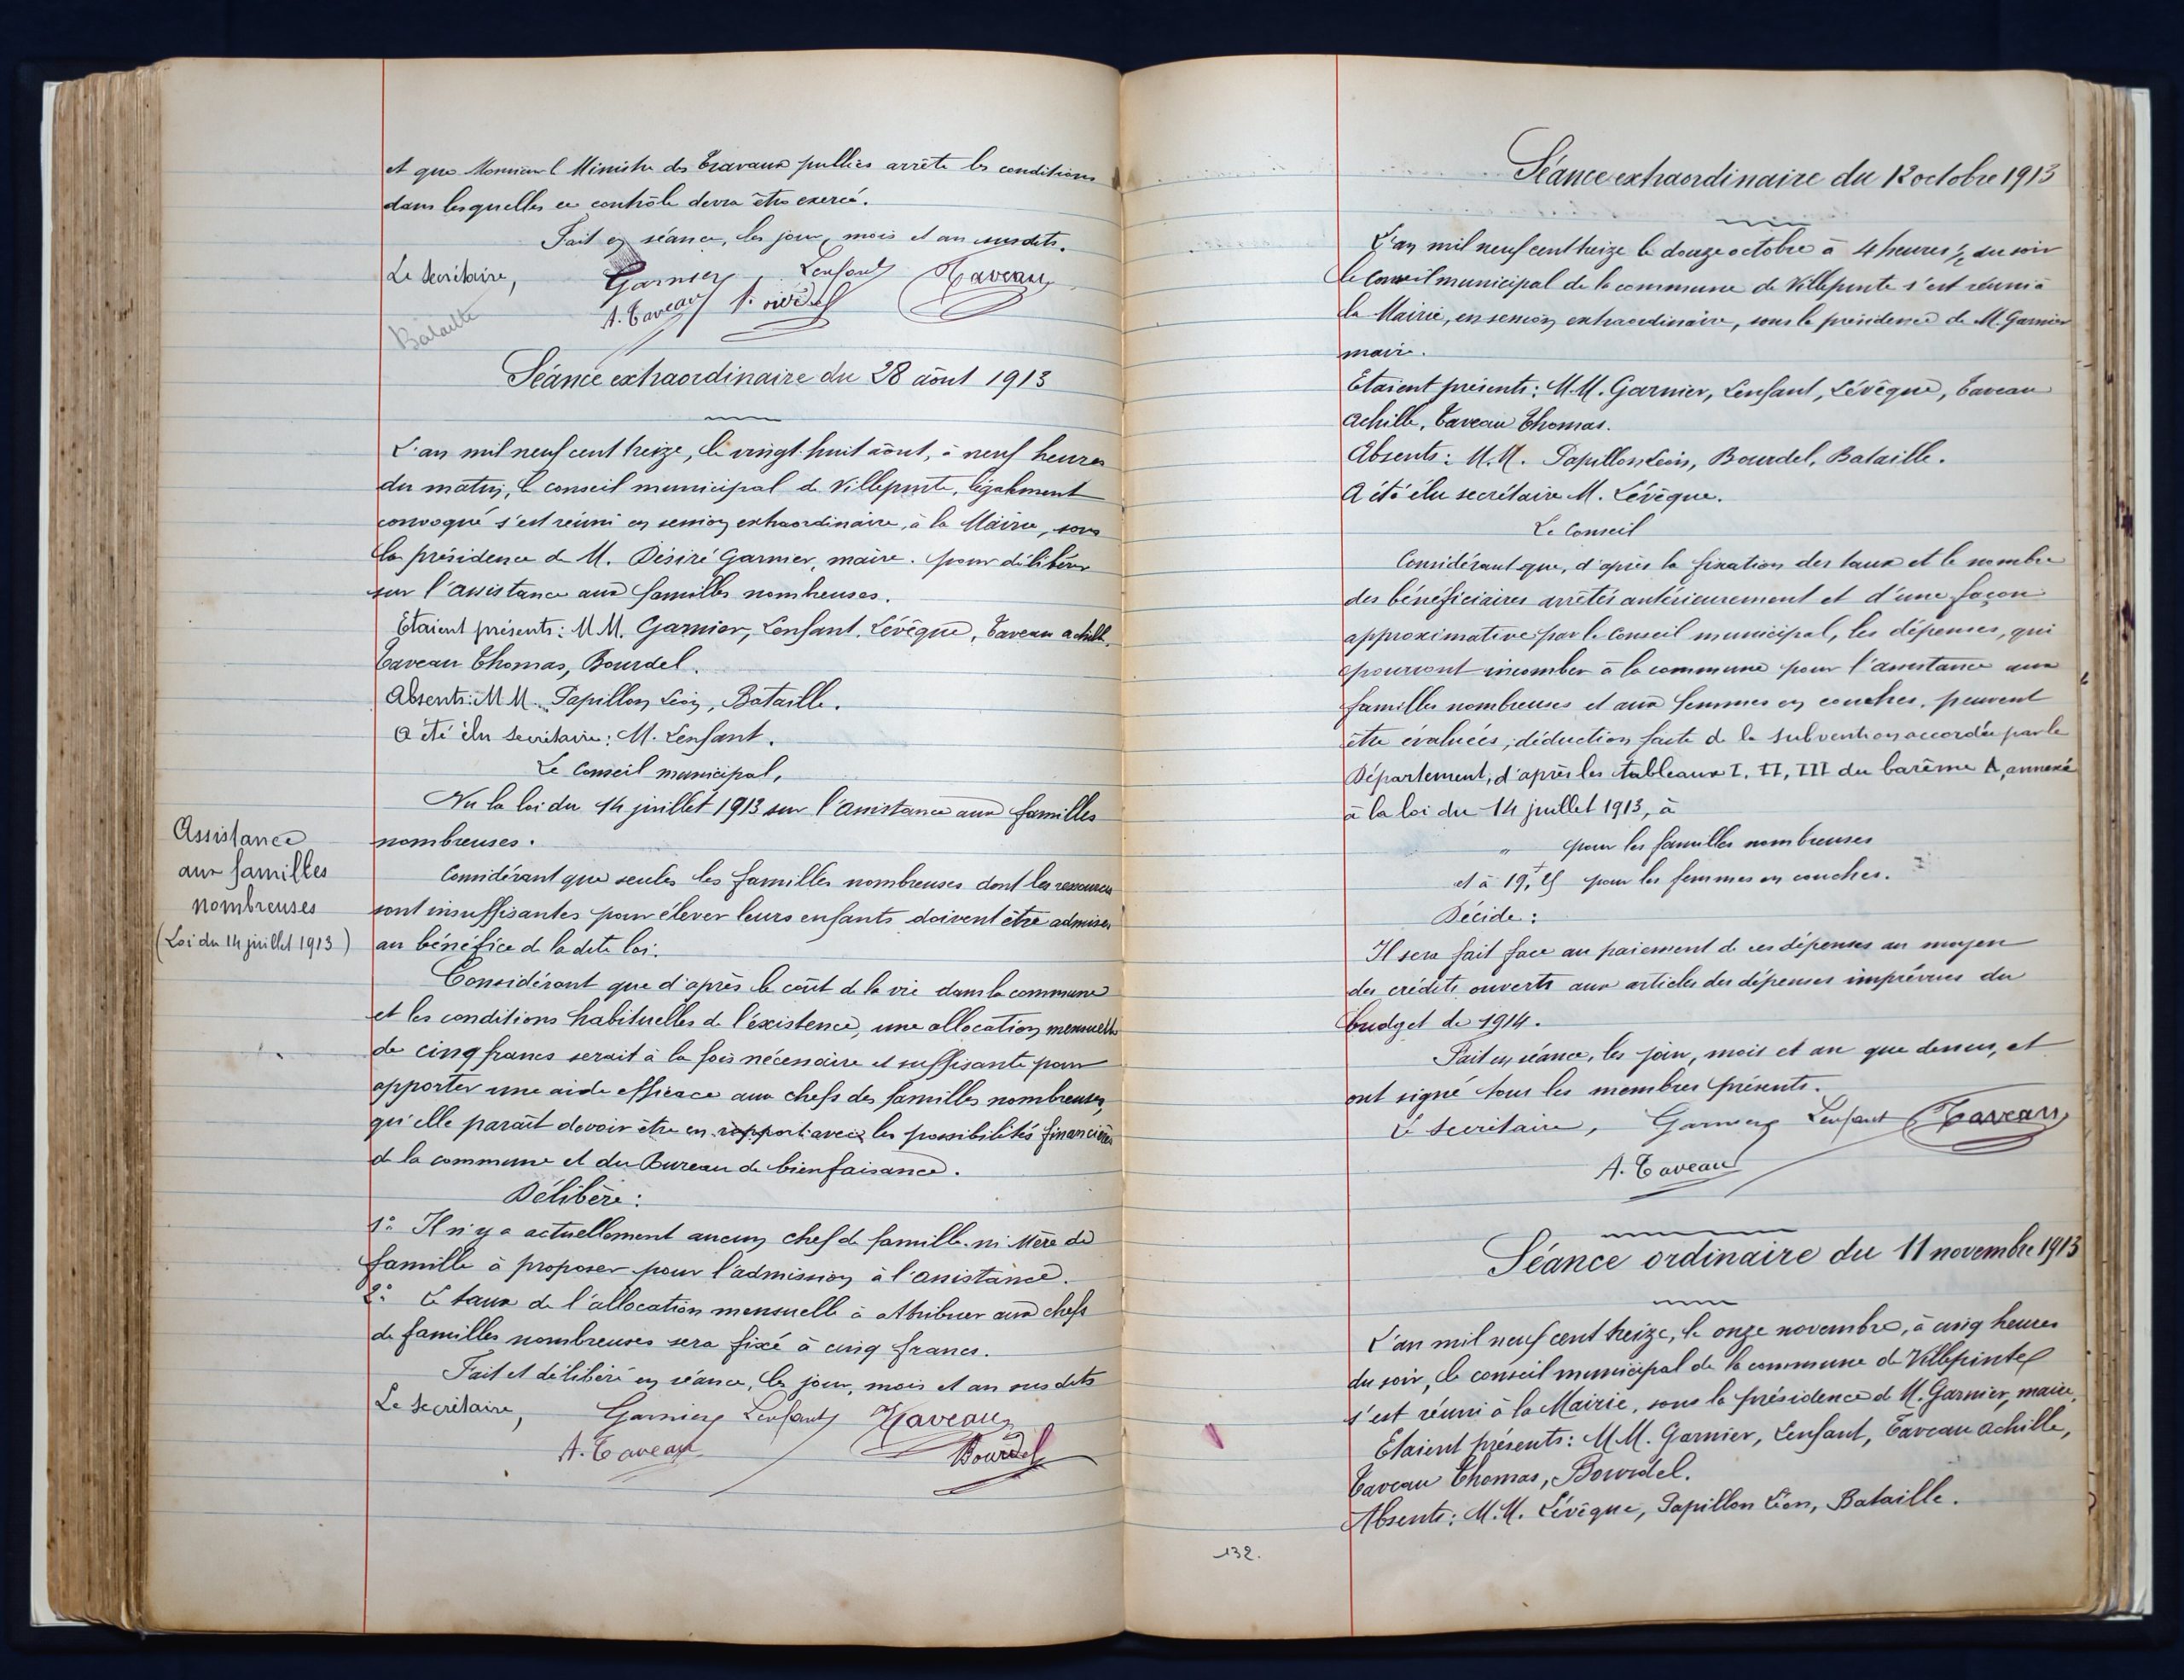 et que Monsieur l Ministre des Travaux publics arrête les conditions
dans lesquelles ce contrôle devra être exercé.
Fait en séance, les jour, mois et an susdits.
Le Secrétaire,
Garnier
Lenfant
Taveau
A. Taveau
Bataille
Séance extraordinaire du 28 août 1913
L'an mil neuf cent treize, le vingt-huit août, à neuf heures
du matin, le conseil municipal de Villepinte, légalement
convoqué s'est réuni en session extraordinaire, à la Mairie, sous
la présidence de M. Désiré Garnier, maire. pour délibérer
sur l'assistance aux familles nombreuses.
Etaient présents: MM. Garnier, Lenfant, Lévêque, Taveau achille,
Taveau Thomas, Bourdel.
Absents: MM. Papillon Léon, Bataille.
A été élu secrétaire: M. Lenfant.
Le Conseil municipal,
Vu la loi du 14 juillet 1913 sur l'assistance aux familles
nombreuses.
Assistance
aux familles
nombreuses
(Loi du 14 juillet 1913)
Considérant que seules les familles nombreuses dont les ressources
sont insuffisantes pour élever leurs enfants doivent être admises
au bénéfice de la dite loi.
Considérant que d'après le coût de la vie dans la commune
et les conditions habituelles de l'éxistence, une allocation mensuelle
de cinq francs serait à la fois nécessaire et suffisante pour
apporter une aide efficace aux chefs des familles nombreuses,
qu'elle paraît devoir être en rapport avec les possibilités financières
de la commune et du Bureau de bienfaisance.
Délibère:
1° Il n'y a actuellement aucun chef de famille ni Mère de
famille à proposer pour l'admission à l'assistance.
2° Le taux de l'allocation mensuelle à attribuer aux chefs
de familles nombreuses sera fixé à cinq francs.
Fait et délibéré en séance, les jour, mois et an susdits
Le Secrétaire,
Garnier Lenfant Taveau
A. Taveau
Bourdel
Séance extraordinaire du 12 octobre 1913
L'an mil neuf cent treize le douze octobre à 4 heures ½ du soir
le Conseil municipal de la commune de Villepinte s'est réuni à
la Mairie, en session extraordinaire, sous la présidence de M. Garnier
maire.
Etaient présents: M.M. Garnier, Lenfant, Lévêque, Taveau
Achille, Taveau Thomas.
Absents: M.M. Papillon Léon, Bourdel, Bataille.
A été élu secrétaire M. Lévêque.
Le Conseil
Considérant que, d'après la fixation des taux et le nombre
des bénéficiaires arrêtés antérieurement et d'une façon
approximative par le Conseil municipal, les dépenses, qui
pourront incomber à la commune pour l'assistance aux
familles nombreuses et aux femmes en couches, peuvent
être évaluées, déduction faite de la subvention accordée par le
Département, d'après les tableaux I, II, III du barème A, annexé
à la loi du 14 juillet 1913, à
" pour les familles nombreuses
et à 19, pour les femmes en couches.
Décide:
Il sera fait face au paiement de ces dépenses au moyen
des crédits ouverts aux articles des dépenses imprévues du
budget de 1914.
Fait en séance, les jour, mois et an que dessus, et
ont signé tous les membres présents.
Le Secrétaire, Garnier Lenfant Taveau
A. Taveau
Séance ordinaire du 11 novembre 1913
L'an mil neuf cent treize, le onze novembre, à cinq heures
du soir, le conseil municipal de la commune de Villepinte
s'est réuni à la Mairie, sous la présidence de M. Garnier, maire.
Etaient présents: M.M. Garnier, Lenfant, Taveau Achille,
Taveau Thomas, Bourdel.
Absents: M.M. Lévêque, Papillon Léon, Bataille.
132.